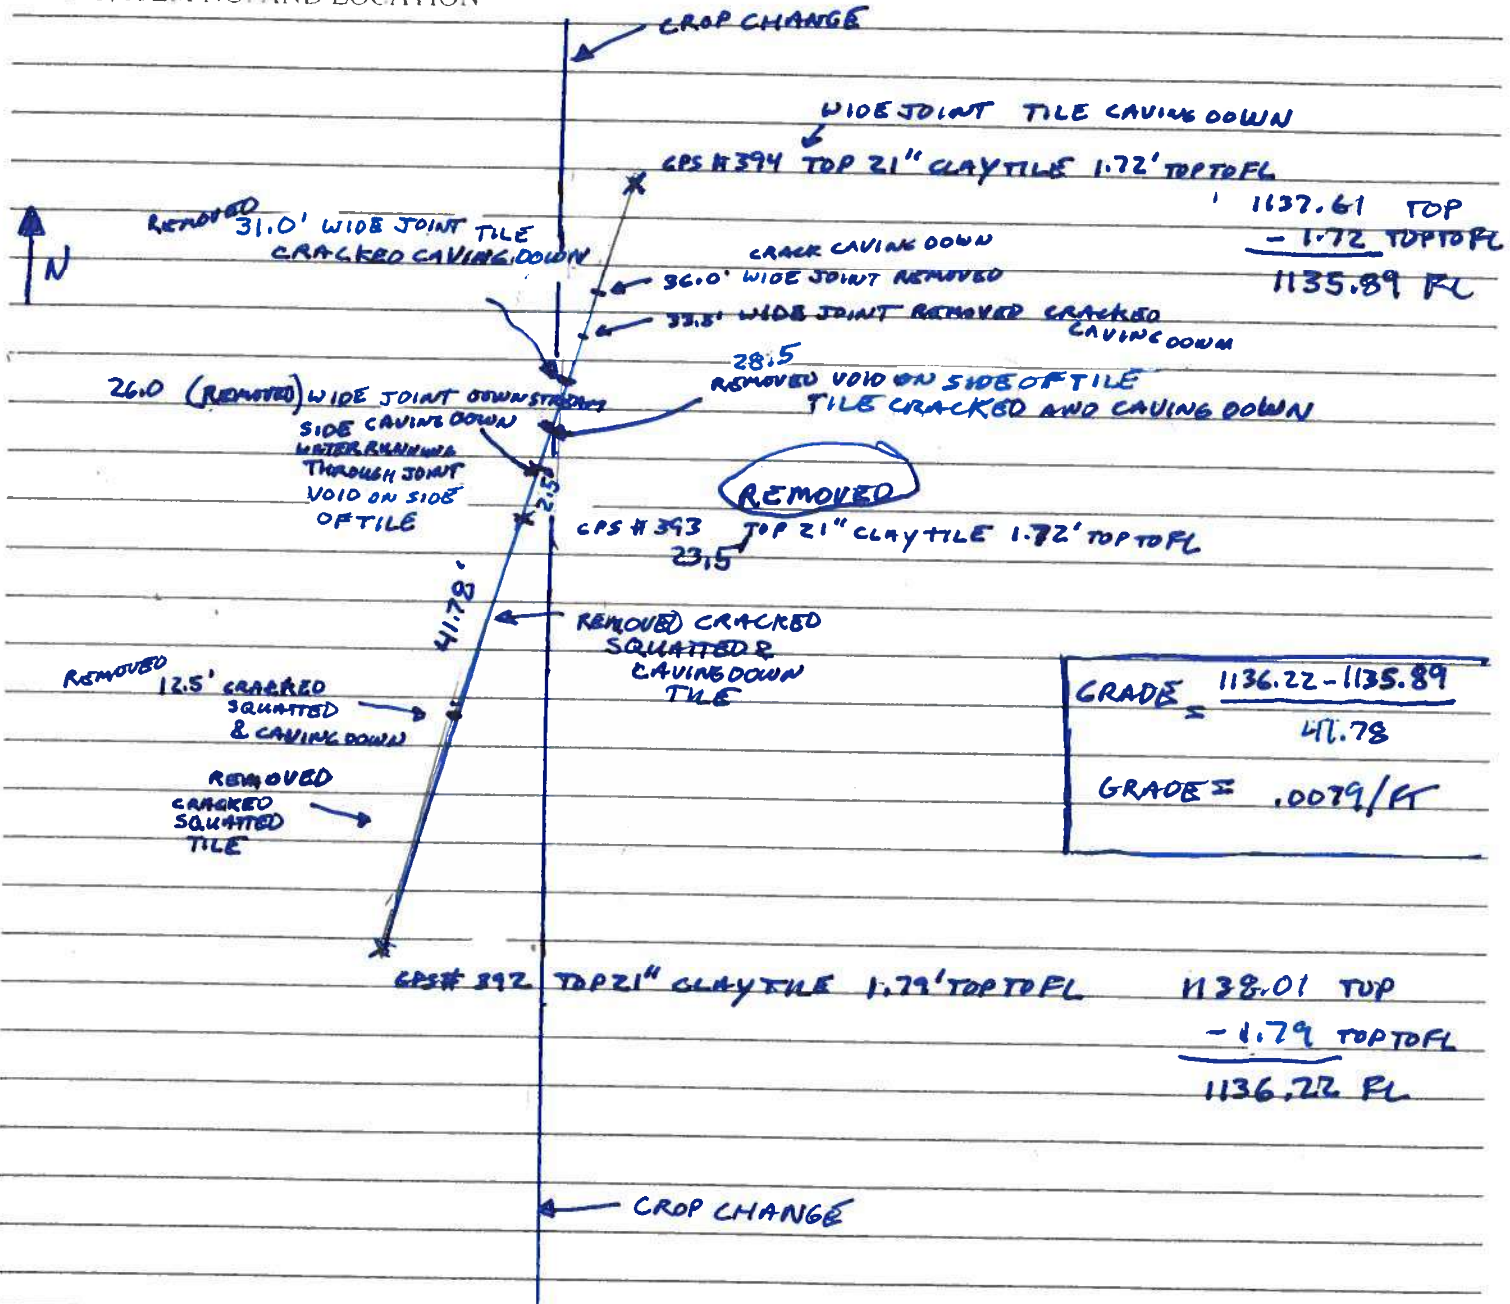 AND LOCATION
CROP CHANGE
WIDE JOINT TILE CAVING DOWN
GPS # 394 TOP 21" CLAY TILE 1.72' TOP TO FL
1137.61 TOP
- 1.72 TOP TO FL
1135.89 FL
N
REMOVED
31.0' WIDE JOINT TILE
CRACKED CAVING DOWN
CRACK CAVING DOWN
36.0' WIDE JOINT REMOVED
33.5' WIDE JOINT REMOVED CRACKED
CAVING DOWN
28.5
REMOVED VOID ON SIDE OF TILE
TILE CRACKED AND CAVING DOWN
26.0 (REMOVED) WIDE JOINT DOWNSTREAM
SIDE CAVING DOWN
WATER RUNNING
THROUGH JOINT
VOID ON SIDE
OF TILE
2.5'
REMOVED
GPS # 393 TOP 21" CLAY TILE 1.72' TOP TO FL
23.5
41.78'
REMOVED CRACKED
SQUATTED &
CAVING DOWN
TILE
REMOVED
12.5' CRACKED
SQUATTED
& CAVING DOWN
REMOVED
CRACKED
SQUATTED
TILE
GRADE = 1136.22 - 1135.89
41.78
GRADE = .0079/FT
GPS # 392 TOP 21" CLAY TILE 1.79' TOP TO FL
1138.01 TOP
- 1.79 TOP TO FL
1136.22 FL
CROP CHANGE